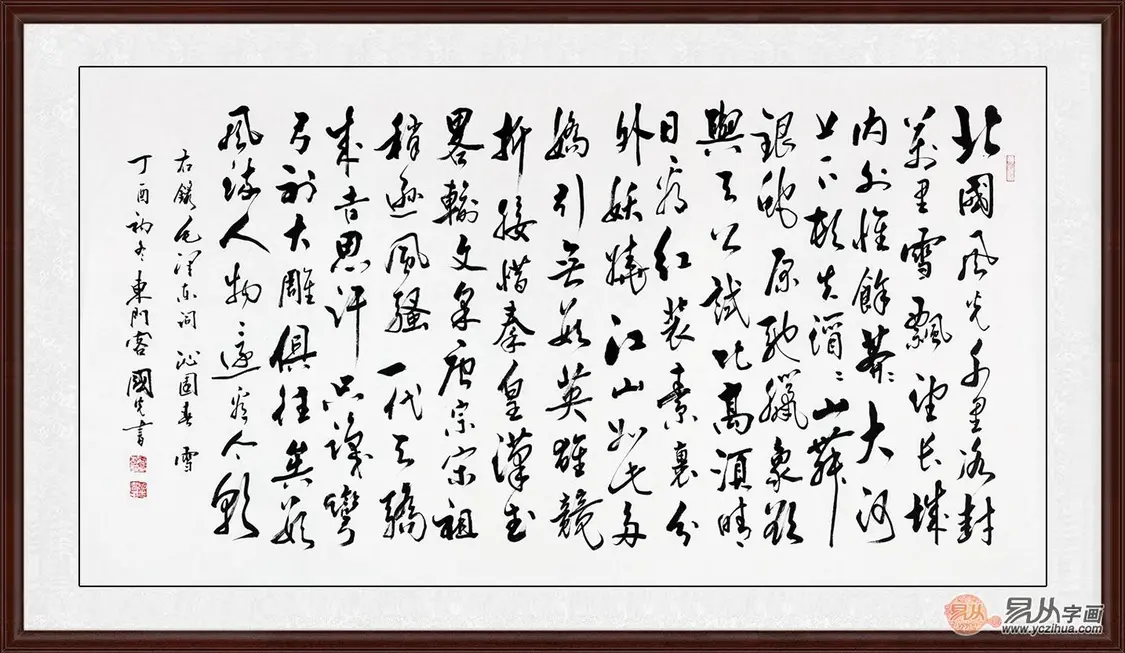 北國風光千里冰封
萬里雪飄望長城
内外惟餘莽〻大河
上下頓失滔〻山舞
銀蛇原馳臘象欲
與天公試比高須晴
日看紅裝素裹分
外妖嬈江山如此多
嬌引無數英雄競
折腰惜秦皇漢武
畧輸文采唐宗宋祖
稍遜風騷一代天驕
成吉思汗只識彎
弓射大雕俱往矣數
風流人物還看今朝
右錄毛澤東詞 沁園春 雪
丁酉初冬東門客國先書
易从 易从字画
www.yczihua.com